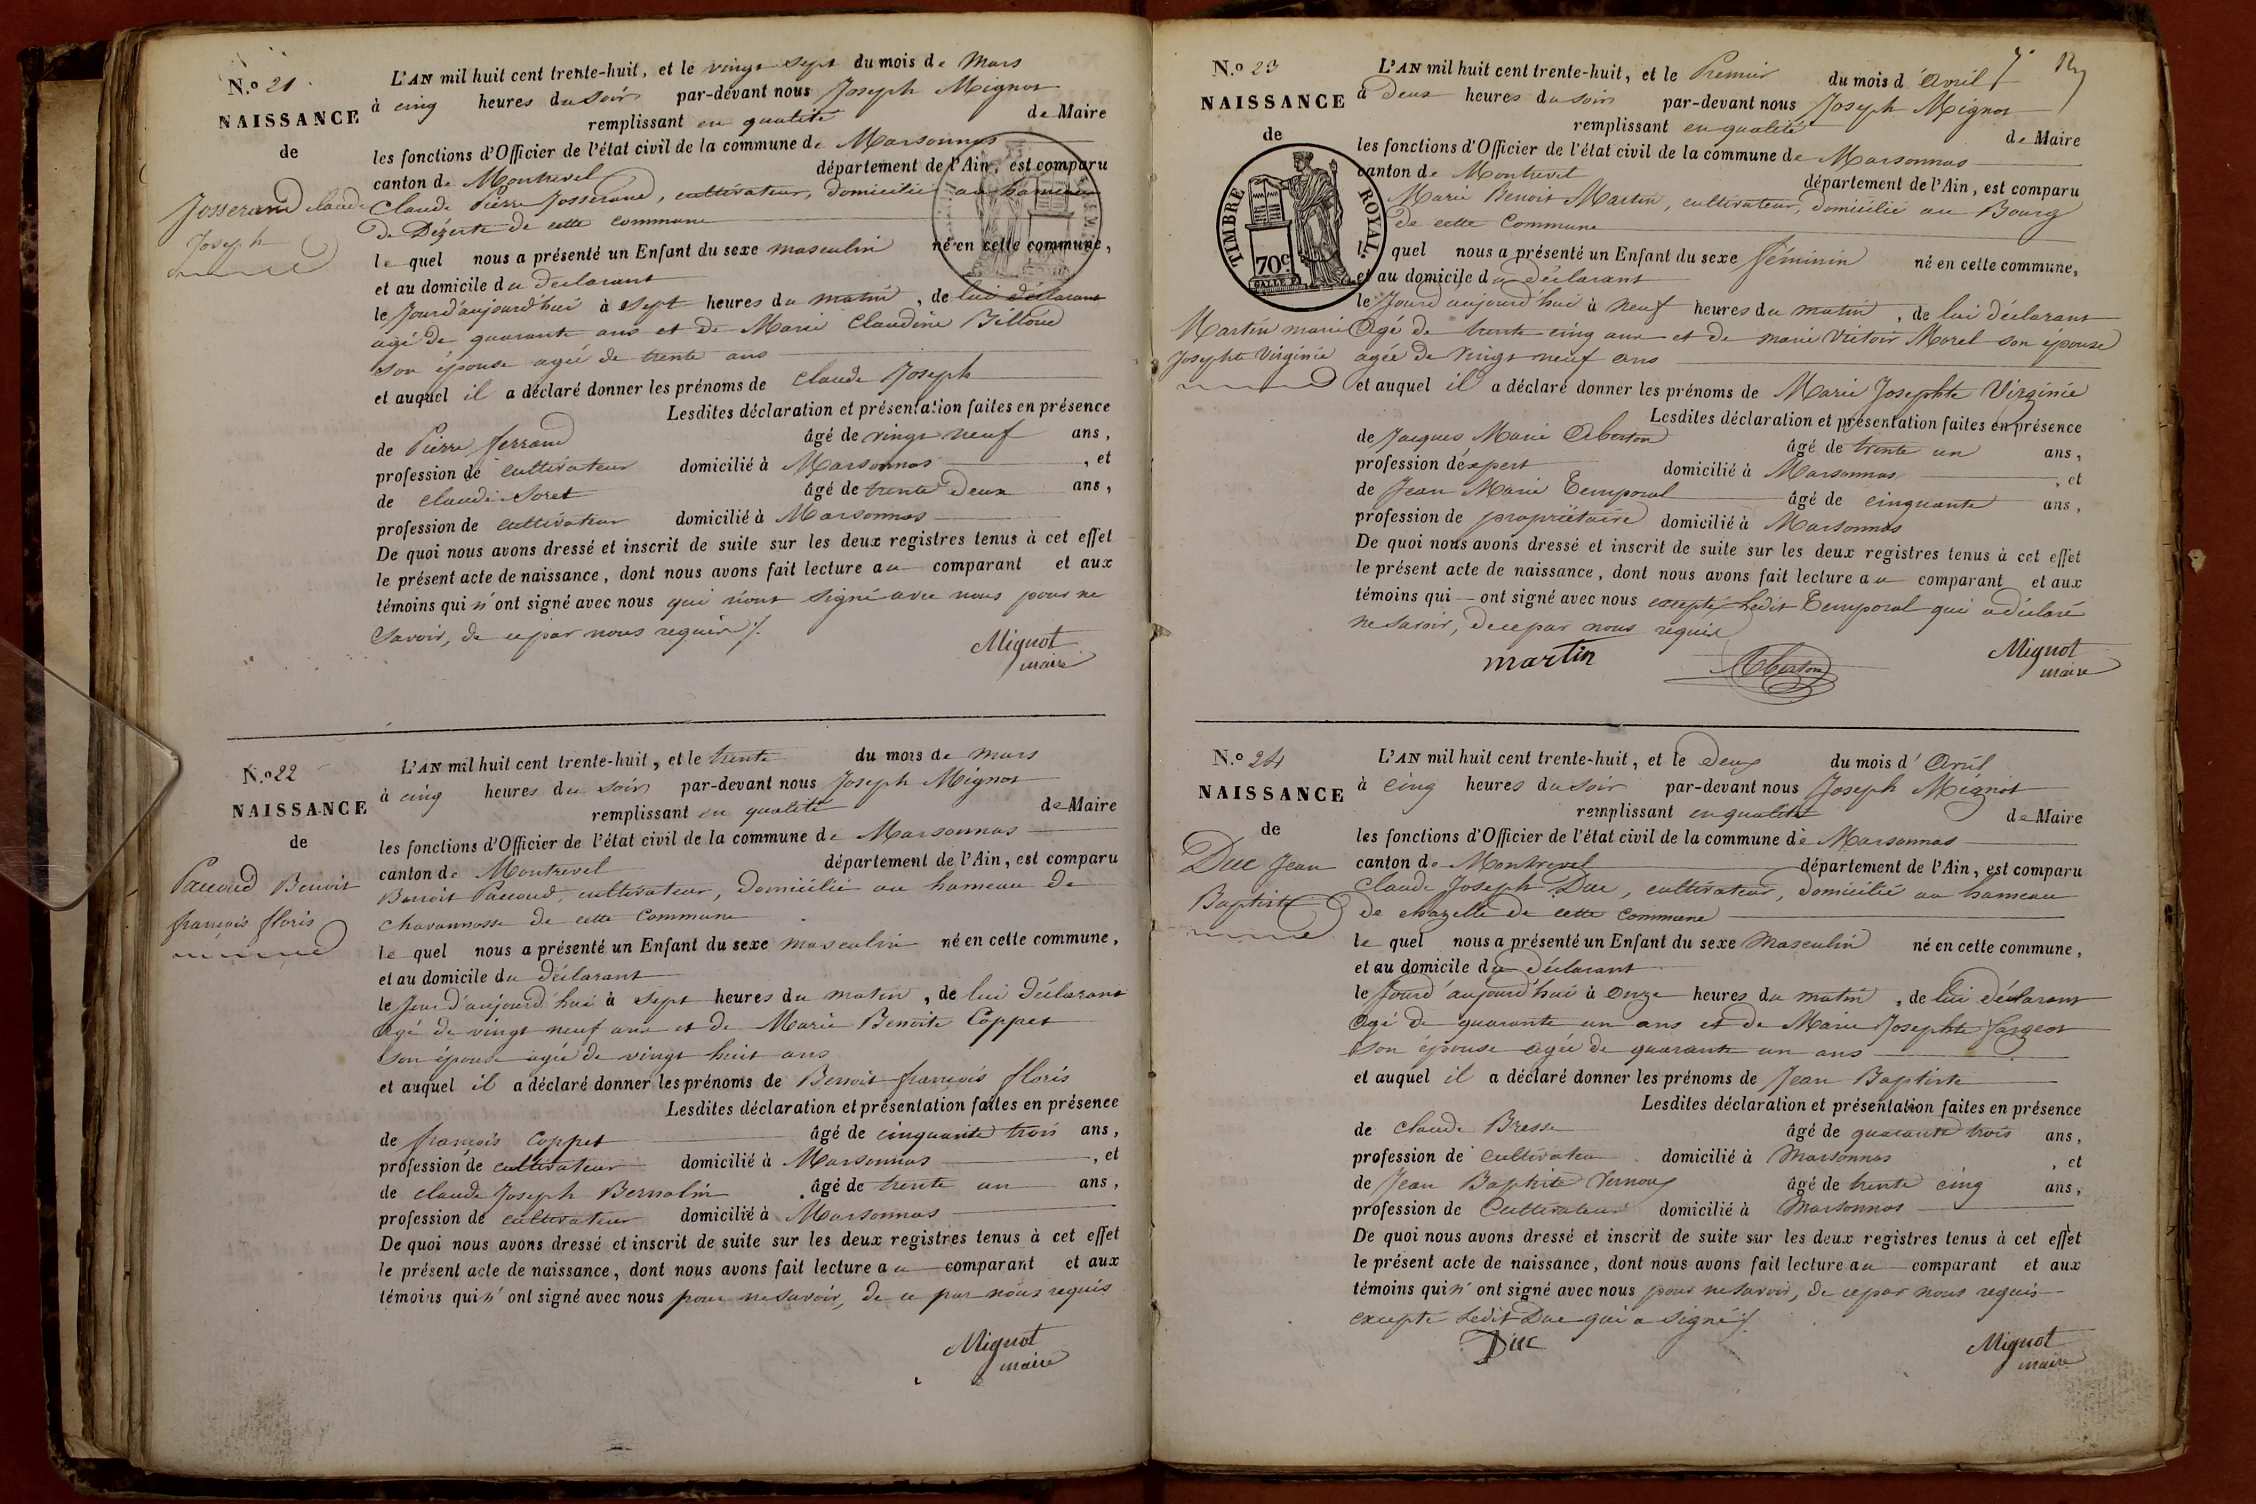 N.o 21
NAISSANCE
de
Josserand claude
Joseph
L'AN mil huit cent trente-huit, et le vingt sept du mois de Mars
à cinq heures du soir par-devant nous Joseph Mignot
remplissant en qualité de Maire
les fonctions d'Officier de l'état civil de la commune de Marsonnas
canton de Montrevel département de l'Ain, est comparu
Claude Pierre Josserand, cultivateur, domicilié au hameau
de Dézerte de cette commune
le quel nous a présenté un Enfant du sexe masculin né en cette commune,
et au domicile du déclarant
le Jourd'aujourd'hui à sept heures du matin, de lui déclarant
agé de quarante ans et de Marie Claudine Billoud
son épouse agée de trente ans
et auquel il a déclaré donner les prénoms de Claude Joseph
Lesdites déclaration et présentation faites en présence
de Pierre ferrand âgé de vingt neuf ans,
profession de cultivateur domicilié à Marsonnas, et
de claude Soret âgé de trente deux ans,
profession de cultivateur domicilié à Marsonnas
De quoi nous avons dressé et inscrit de suite sur les deux registres tenus à cet effet
le présent acte de naissance, dont nous avons fait lecture au comparant et aux
témoins qui n'ont signé avec nous qui n'ont signé avec nous pour ne
savoir, de ce par nous requis ./.
Mignot
maire
N.o 22
NAISSANCE
de
Pacoud Benoit
françois floris
L'AN mil huit cent trente-huit, et le trente du mois de mars
à cinq heures du soir par-devant nous Joseph Mignot
remplissant en qualité de Maire
les fonctions d'Officier de l'état civil de la commune de Marsonnas
canton de Montrevel département de l'Ain, est comparu
Benoit Pacoud, cultivateur, domicilié au hameau de
chavannosse de cette Commune
le quel nous a présenté un Enfant du sexe masculin né en cette commune,
et au domicile du déclarant
le Jour d'aujourd'hui à sept heures du matin, de lui déclarant
agé de vingt neuf ans et de Marie Benoite Coppet
son épouse agée de vingt huit ans
et auquel il a déclaré donner les prénoms de Benoit françois floris
Lesdites déclaration et présentation faites en présence
de françois Coppet âgé de cinquante trois ans,
profession de cultivateur domicilié à Marsonnas, et
de claude Joseph Bernolin âgé de trente un ans,
profession de cultivateur domicilié à Marsonnas
De quoi nous avons dressé et inscrit de suite sur les deux registres tenus à cet effet
le présent acte de naissance, dont nous avons fait lecture au comparant et aux
témoins qui n'ont signé avec nous pour ne savoir, de ce par nous requis
Mignot
maire
N.o 23
NAISSANCE
de
TIMBRE ROYAL
70c
Martin marie
Josephte Virginie
L'AN mil huit cent trente-huit, et le Premier du mois d'Avril
à deux heures du soir par-devant nous Joseph Mignot
remplissant en qualité de Maire
les fonctions d'Officier de l'état civil de la commune de Marsonnas
canton de Montrevel département de l'Ain, est comparu
Marie Benoit Martin, cultivateur, domicilié au Bourg
de cette Commune
le quel nous a présenté un Enfant du sexe féminin né en cette commune,
et au domicile du déclarant
le Jourd'aujourd'hui à neuf heures du matin, de lui déclarant
agé de trente cinq ans et de marie Victoir Morel son épouse
agée de vingt neuf ans
et auquel il a déclaré donner les prénoms de Marie Josephte Virginie
Lesdites déclaration et présentation faites en présence
de Jacques Marie Oberson âgé de trente un ans,
profession d'expert domicilié à Marsonnas, et
de Jean Marie Temporal âgé de cinquante ans,
profession de propriétaire domicilié à Marsonnas
De quoi nous avons dressé et inscrit de suite sur les deux registres tenus à cet effet
le présent acte de naissance, dont nous avons fait lecture au comparant et aux
témoins qui ont signé avec nous excepté Ledit Temporal qui a déclaré
ne savoir, de ce par nous requis
martin
Mignot
maire
N.o 24
NAISSANCE
de
Duc Jean
Baptiste
L'AN mil huit cent trente-huit, et le deux du mois d'Avril
à cinq heures du soir par-devant nous Joseph Mignot
remplissant en qualité de Maire
les fonctions d'Officier de l'état civil de la commune de Marsonnas
canton de Montrevel département de l'Ain, est comparu
Claude Joseph Duc, cultivateur, domicilié au hameau
de chazelle de cette commune
le quel nous a présenté un Enfant du sexe Masculin né en cette commune,
et au domicile du déclarant
le Jourd'aujourd'hui à onze heures du matin, de lui déclarant
agé de quarante un ans et de Marie Josephte fargeot
son épouse agée de quarante un ans
et auquel il a déclaré donner les prénoms de Jean Baptiste
Lesdites déclaration et présentation faites en présence
de Claude Bresse âgé de quarante trois ans,
profession de cultivateur domicilié à Marsonnas, et
de Jean Baptiste Vernoux âgé de trente cinq ans,
profession de Cultivateur domicilié à Marsonnas
De quoi nous avons dressé et inscrit de suite sur les deux registres tenus à cet effet
le présent acte de naissance, dont nous avons fait lecture au comparant et aux
témoins qui n'ont signé avec nous pour ne savoir, de ce par nous requis
excepté Ledit Duc qui a signé ./.
Duc
Mignot
maire